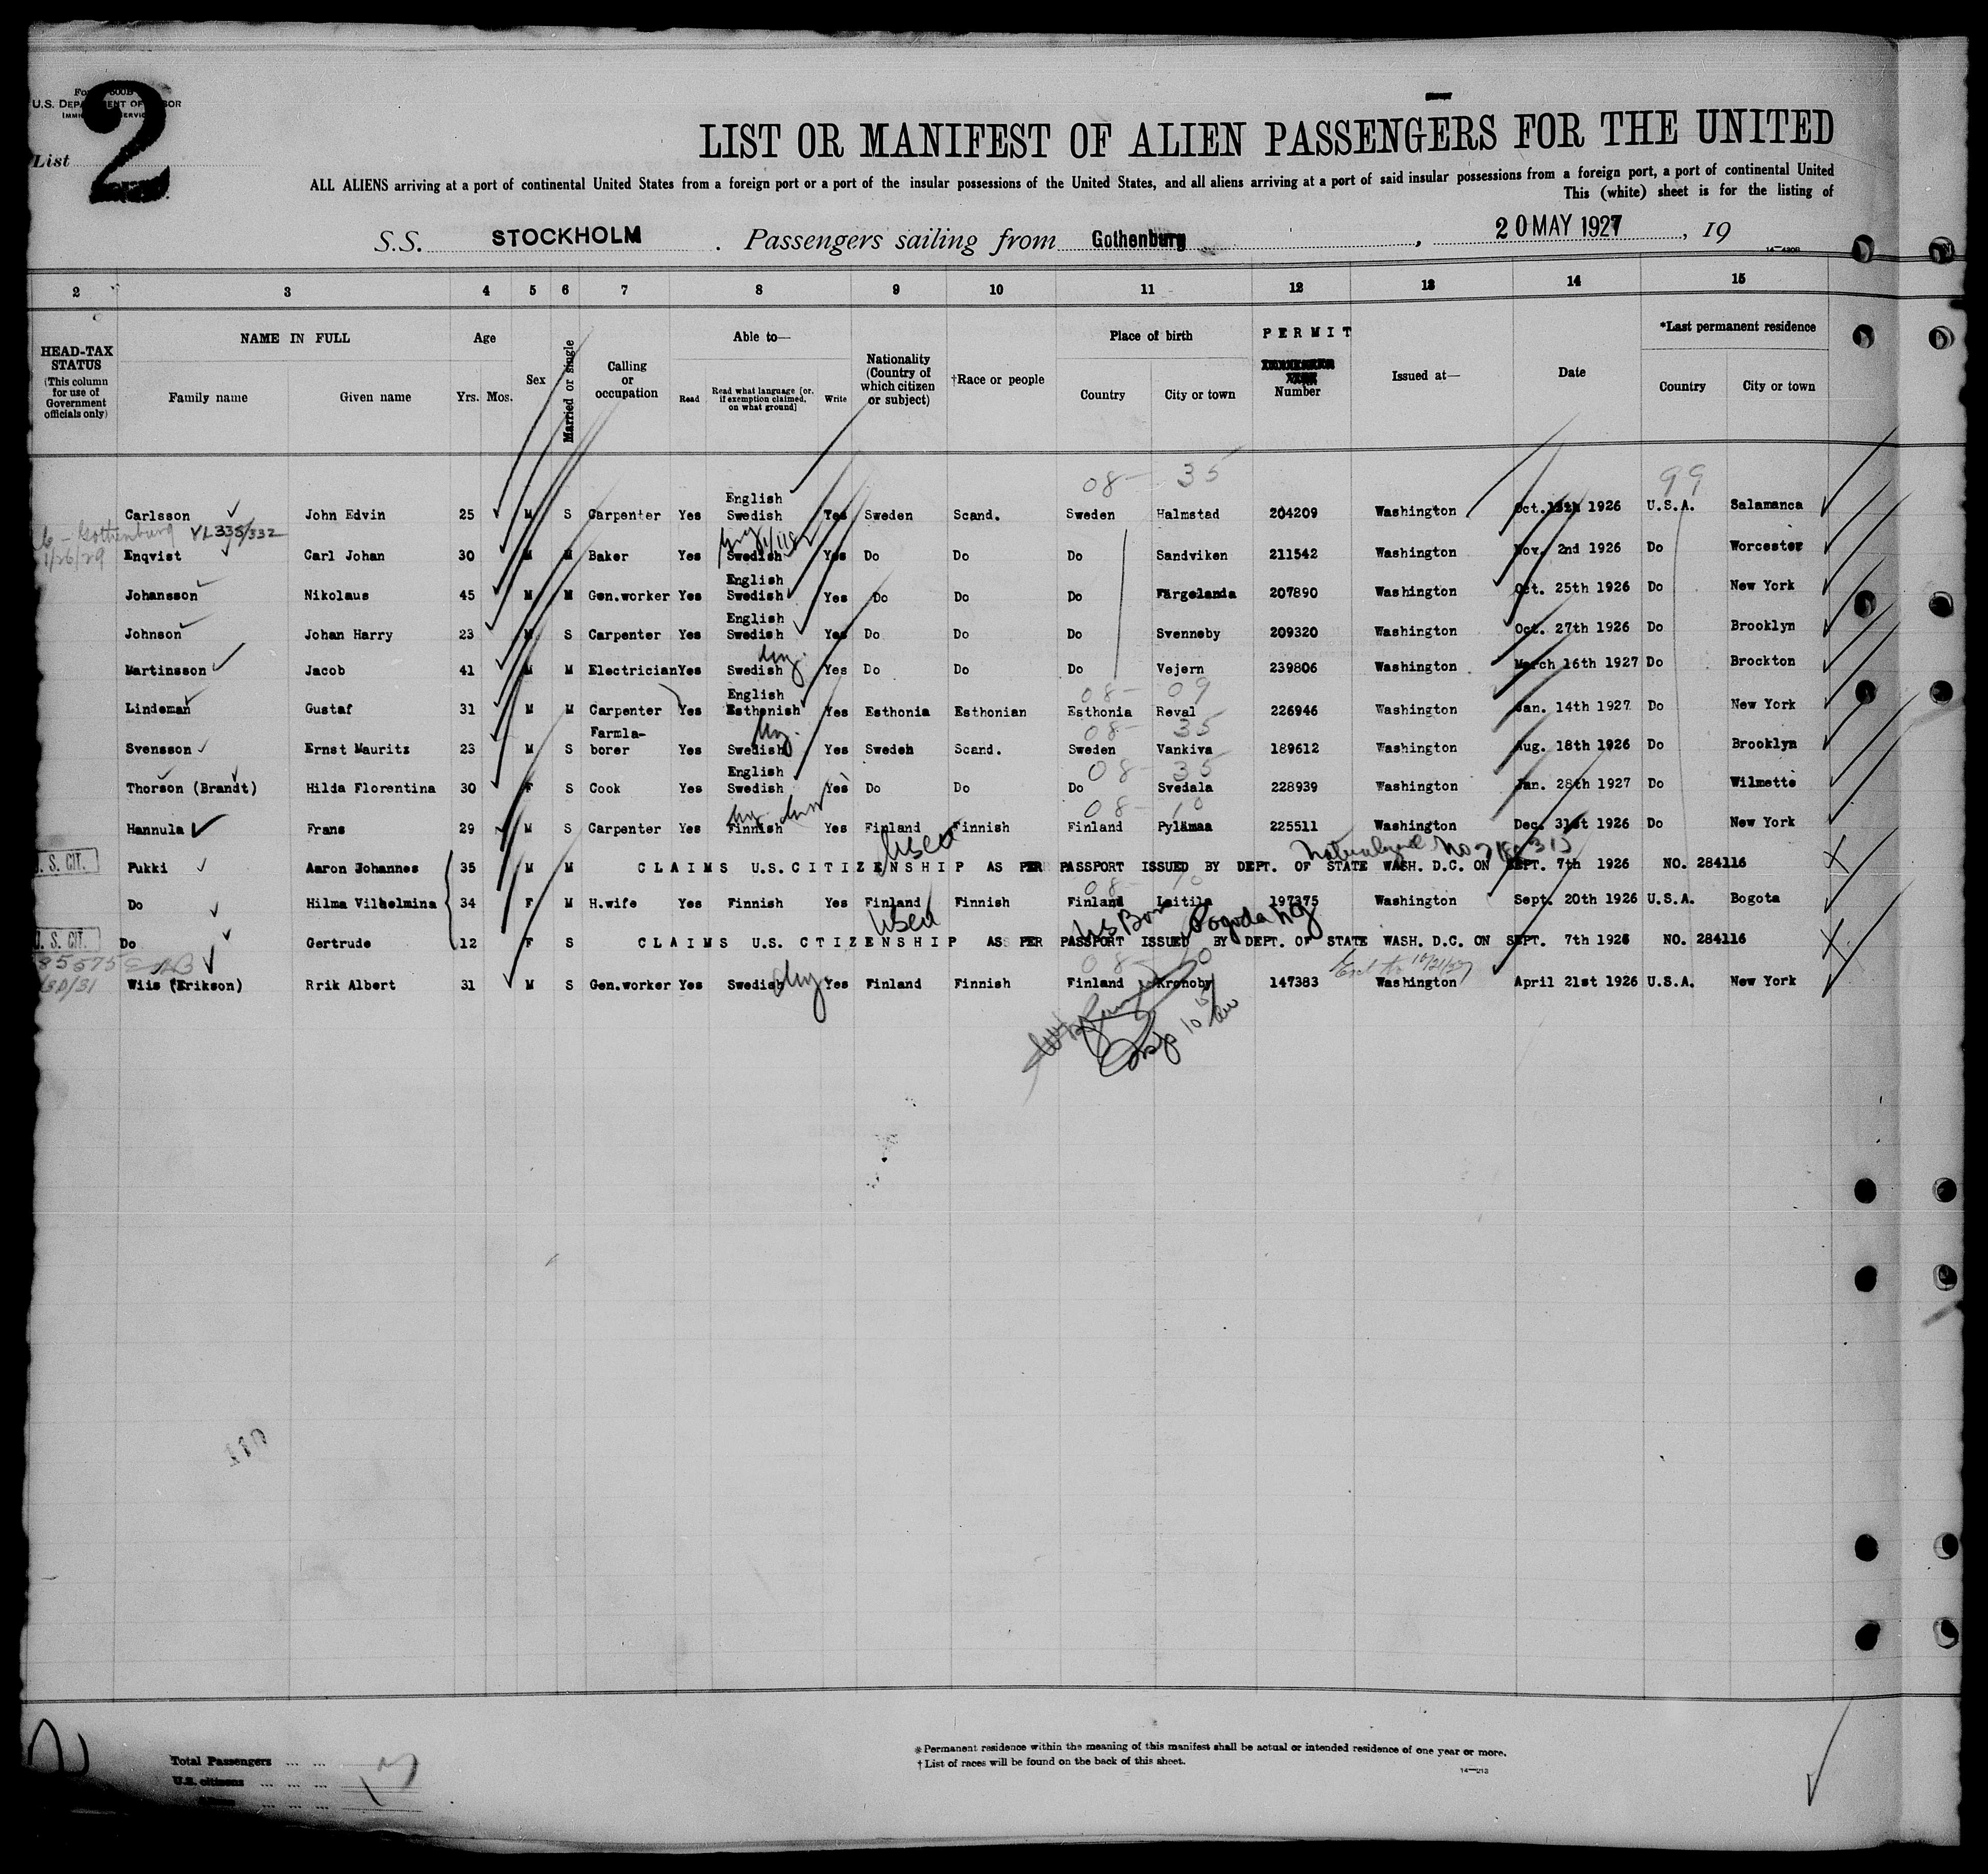 U.S. DEPARTMENT OF LABOR
List 2
LIST OR MANIFEST OF ALIEN PASSENGERS FOR THE UNITED
ALL ALIENS arriving at a port of continental United States from a foreign port or a port of the insular possessions of the United States, and all aliens arriving at a port of said insular possessions from a foreign port, a port of continental United
This (white) sheet is for the listing of
S.S. STOCKHOLM . Passengers sailing from Gothenburg , 20 MAY 1927 , 19
2 3 4 5 6 7 8 9 10 11 12 13 14 15
HEAD-TAX STATUS (This column for use of Government officials only)
NAME IN FULL
Family name Given name
Age
Yrs. Mos.
Sex
Married or single
Calling or occupation
Able to—
Read Read what language [or, if exemption claimed, on what ground] Write
Nationality (Country of which citizen or subject)
†Race or people
Place of birth
Country City or town
PERMIT
Number
Issued at—
Date
*Last permanent residence
Country City or town
08- 35 99
Carlsson John Edvin 25 M S Carpenter Yes English Swedish Yes Sweden Scand. Sweden Halmstad 204209 Washington Oct. 1926 U.S.A. Salamanca
Gothenburg VL 335/332
1/26/29 Enqvist Carl Johan 30 M M Baker Yes Swedish Yes Do Do Do Sandviken 211542 Washington Nov. 2nd 1926 Do Worcester
Johansson Nikolaus 45 M M Gen.worker Yes English Swedish Yes Do Do Do Färgelanda 207890 Washington Oct. 25th 1926 Do New York
Johnson Johan Harry 23 M S Carpenter Yes English Swedish Yes Do Do Do Svenneby 209320 Washington Oct. 27th 1926 Do Brooklyn
Martinsson Jacob 41 M M Electrician Yes Swedish Yes Do Do Do Vejern 239806 Washington March 16th 1927 Do Brockton
08- 09
Lindeman Gustaf 31 M M Carpenter Yes English Esthonish Yes Esthonia Esthonian Esthonia Reval 226946 Washington Jan. 14th 1927 Do New York
08- 35
Svensson Ernst Mauritz 23 M S Farmla-borer Yes Swedish Yes Sweden Scand. Sweden Vankiva 189612 Washington Aug. 18th 1926 Do Brooklyn
08- 35
Thorson (Brandt) Hilda Florentina 30 F S Cook Yes English Swedish Yes Do Do Do Svedala 228939 Washington Jan. 28th 1927 Do Wilmette
08- 10
Hannula Frans 29 M S Carpenter Yes Finnish Yes Finland Finnish Finland Pylämaa 225511 Washington Dec. 31st 1926 Do New York
U. S. CIT. Pukki Aaron Johannes 35 M M CLAIMS U.S. CITIZENSHIP AS PER PASSPORT ISSUED BY DEPT. OF STATE WASH. D.C. ON SEPT. 7th 1926 NO. 284116
08- 10
Do Hilma Vilhelmina 34 F M H.wife Yes Finnish Yes Finland Finnish Finland Laitila 197375 Washington Sept. 20th 1926 U.S.A. Bogota
U. S. CIT. Do Gertrude 12 F S CLAIMS U.S. CTIZENSHIP AS PER PASSPORT ISSUED BY DEPT. OF STATE WASH. D.C. ON SEPT. 7th 1926 NO. 284116
85575 08- 10
Wiis (Erikson) Rrik Albert 31 M S Gen.worker Yes Swedish Yes Finland Finnish Finland Kronoby 147383 Washington April 21st 1926 U.S.A. New York
Total Passengers ... ...
U.S. citizens ... ... ...
*Permanent residence within the meaning of this manifest shall be actual or intended residence of one year or more.
†List of races will be found on the back of this sheet.
14—213